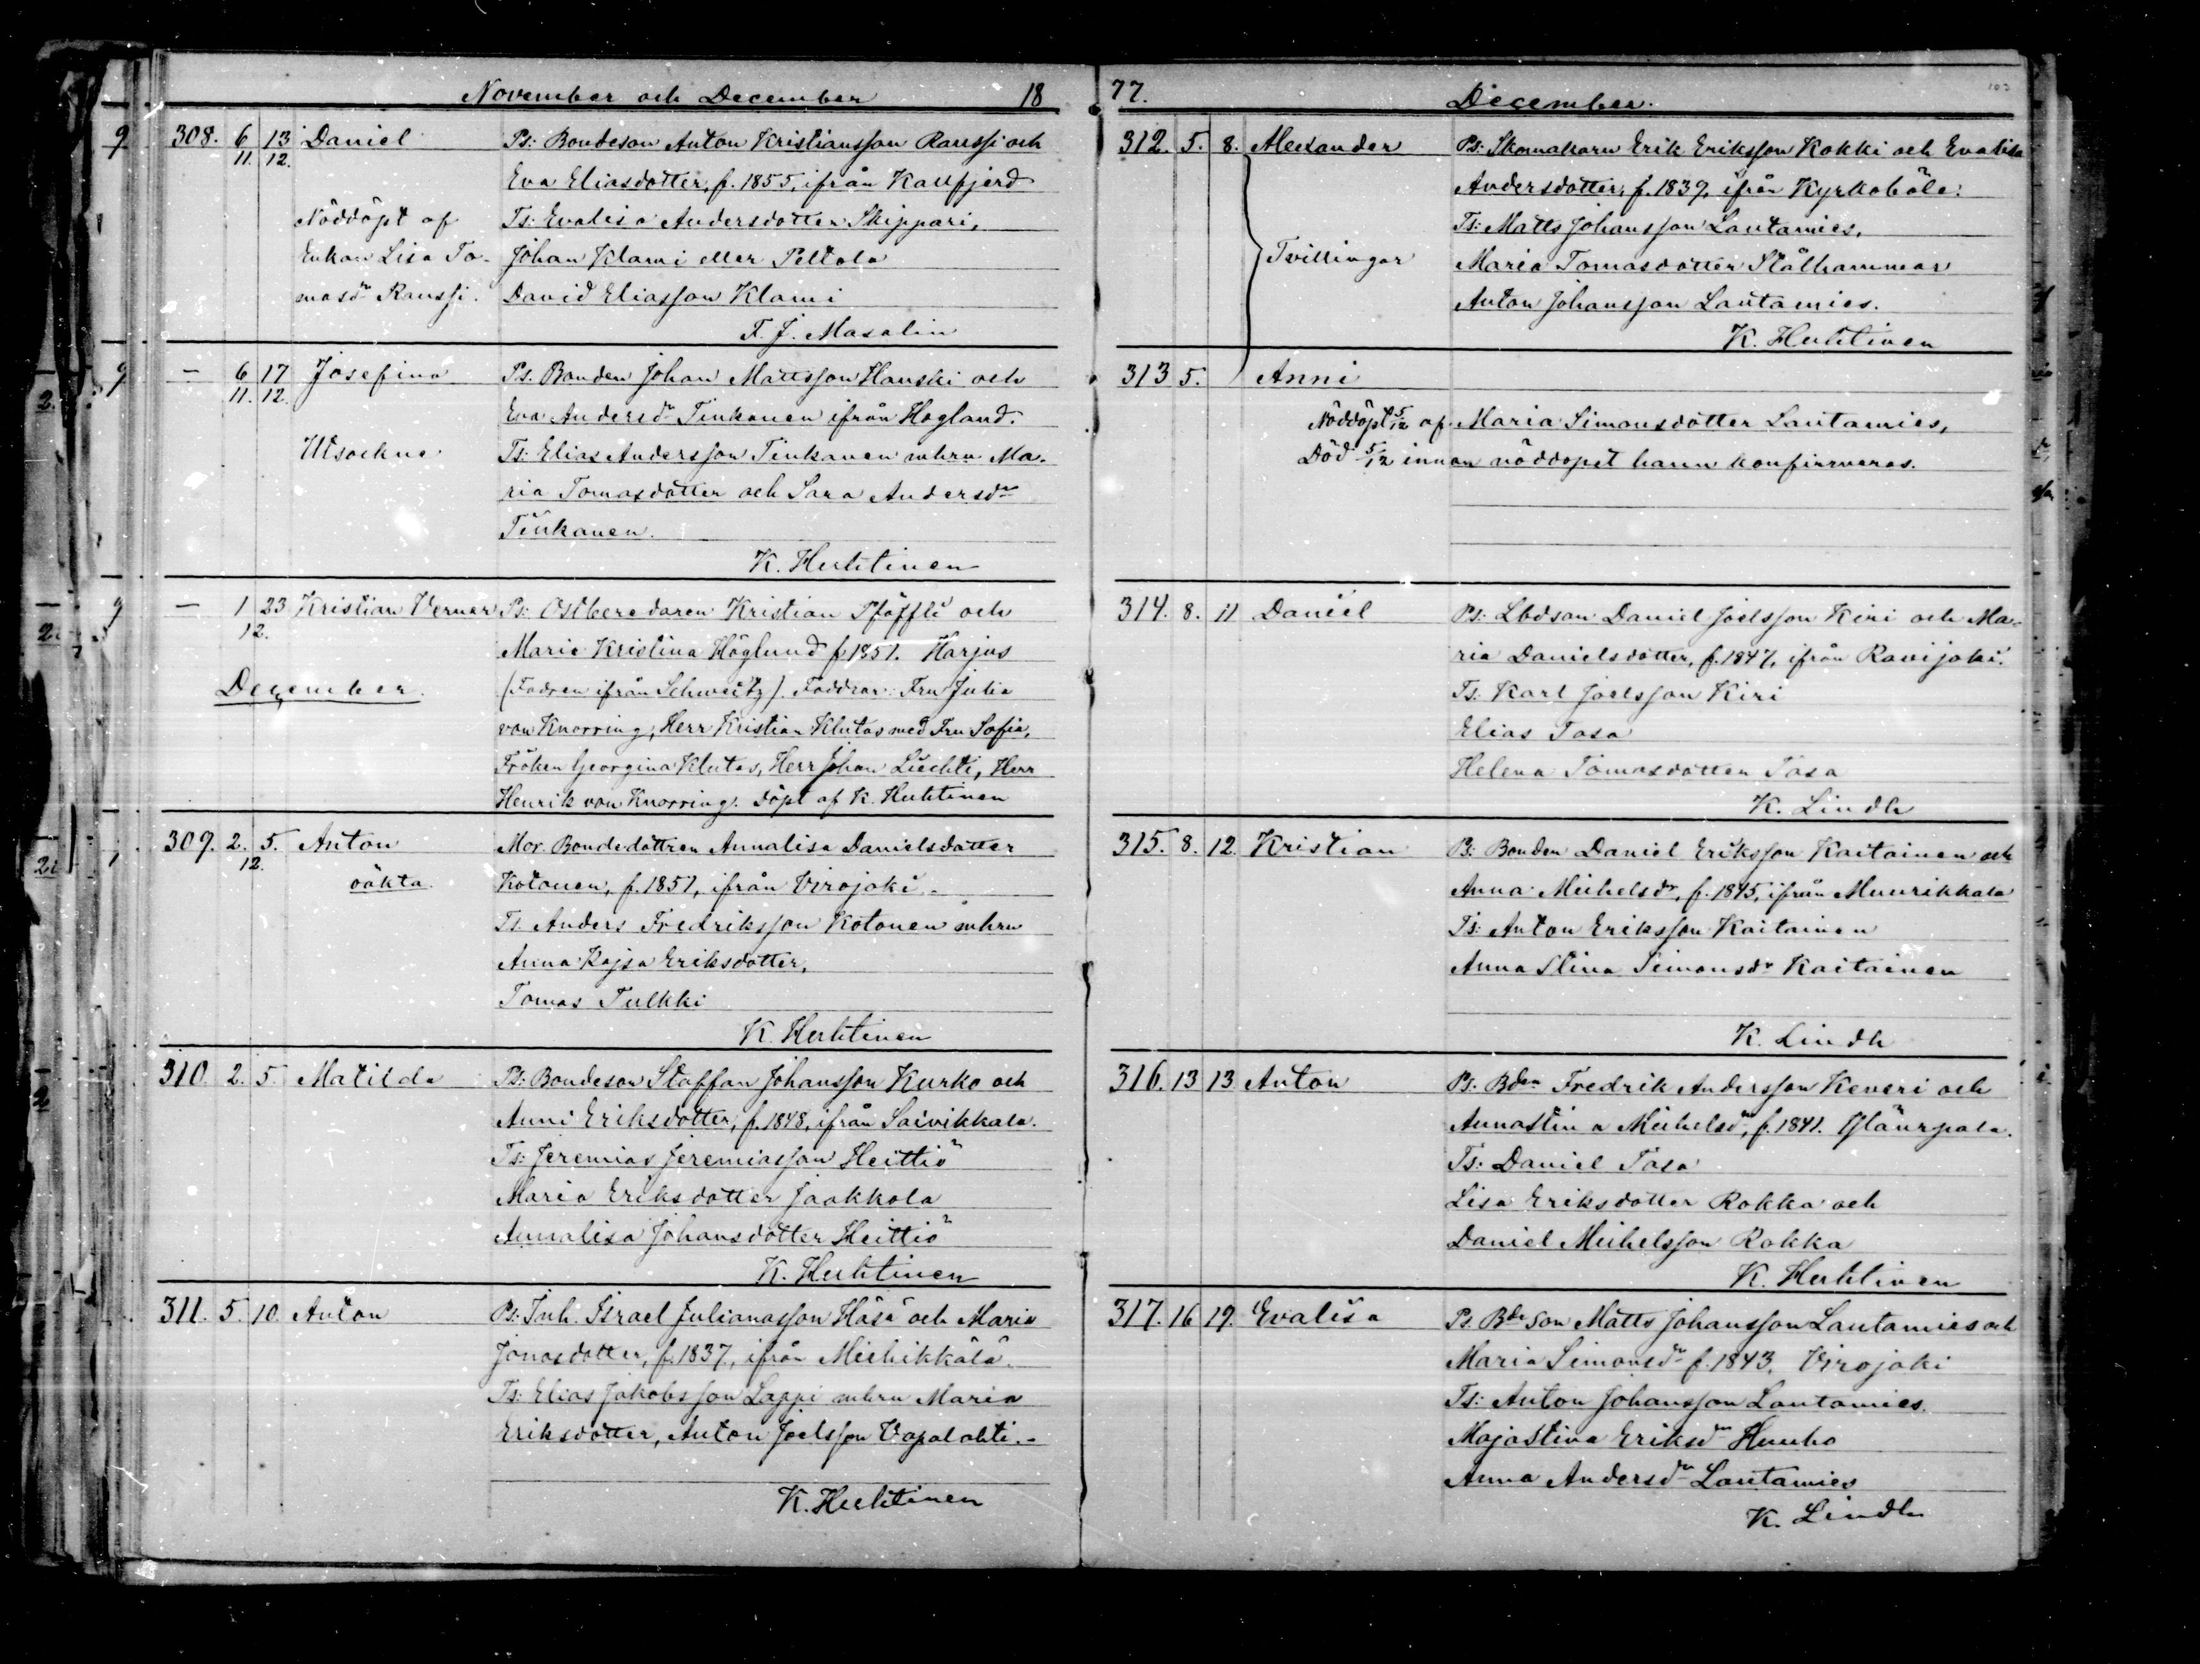 November och December 18
308. 6 13 Daniel Ps: Bondeson Anton Kristiansson Ranssi och
11. 12. Eva Eliasdotter, f. 1855, ifrån Kallfjerd
Nöddöpt af Ts: Evalisa Andersdotter Skippari,
Enkan Lisa To- Johan Klami eller Peltola
masdr Ranssi. David Eliasson Klami
F. J. Masalin
— 6 17 Josefina Ps. Bonden Johan Mattsson Hanski och
11. 12. Eva Andersdr Tinkanen ifrån Hogland.
Utsockne Ts: Elias Andersson Tinkanen mhru Ma-
ria Tomasdotter och Sara Andersdr
Tinkanen.
K. Huhtinen
— 1 23 Kristian Verner Ps: Ostberedaren Kristian Pfäffli och
12. Maria Kristina Höglund f 1851. Harjus
December. (Fadren ifrån Schweitz). Faddrar: Fru Julia
von Knorring, Herr Kristian Klutas med Fru Sofia,
Fröken Georgina Klutas, Herr Johan Liechti, Herr
Henrik von Knorring. döpt af K. Huhtinen
309. 2. 5. Anton Mor. Bondedottren Annalisa Danielsdotter
12. oäkta. Kotonen, f. 1851, ifrån Virojoki.
Ts. Anders Fredriksson Kotonen mhru
Anna Kajsa Eriksdotter,
Tomas Tulkki
K. Huhtinen
310 2. 5. Matilda Ps: Bondeson Staffan Johansson Kurko och
Anni Eriksdotter, f. 1848, ifrån Saivikkala.
Ts: Jeremias Jeremiasson Heittiö
Maria Eriksdotter Jaakkola
Annalisa Johansdotter Heittiö
K. Huhtinen
311. 5. 10. Anton Ps: Inh. Israel Julianasson Häsä och Maria
Jonasdotter, f. 1837, ifrån Miehikkälä.
Ts: Elias Jakobsson Lappi mhru Maria
Eriksdotter, Anton Joelsson Vapalahti.-
K. Huhtinen
77. December. 103
312. 5. 8. Alexander Ps: Skomakarn Erik Eriksson Kokki och Evalisa
Andersdotter, f. 1839, ifrån Kyrkoböle.
Ts: Matts Johansson Lautamies,
Tvillingar Maria Tomasdotter Stålhammar
Anton Johansson Lautamies.
K. Huhtinen
313 5. Anni
Nöddöpt 5/12 af Maria Simonsdotter Lautamies,
Död 5/12 innan nöddopet hann konfirmeras.
314. 8. 11 Daniel Ps: Lbdson Daniel Joelsson Kiri och Ma-
ria Danielsdotter, f. 1847, ifrån Ravijoki.
Ts: Karl Joelsson Kiri
Elias Tasa
Helena Tomasdotter Tasa
K. Lindh
315. 8. 12. Kristian Ps: Bonden Daniel Eriksson Kaitainen och
Anna Michelsdr, f. 1845, ifrån Muurikkala
Ts: Anton Eriksson Kaitainen
Anna Stina Simonsdr Kaitainen
K. Lindh
316. 13 13 Anton Ps: Bden Fredrik Andersson Keveri och
Annastina Michelsdr, f. 1841.
Ts: Daniel Tasa
Lisa Eriksdotter Rokka och
Daniel Michelsson Rokka
K. Huhtinen
317. 16 19. Evalisa Ps. Bdeson Matts Johansson Lautamies och
Maria Simonsdr f. 1843. Virojoki
Ts: Anton Johansson Lautamies.
Majastina Eriksdr Huuho
Anna Andersdr Lautamies
K. Lindh